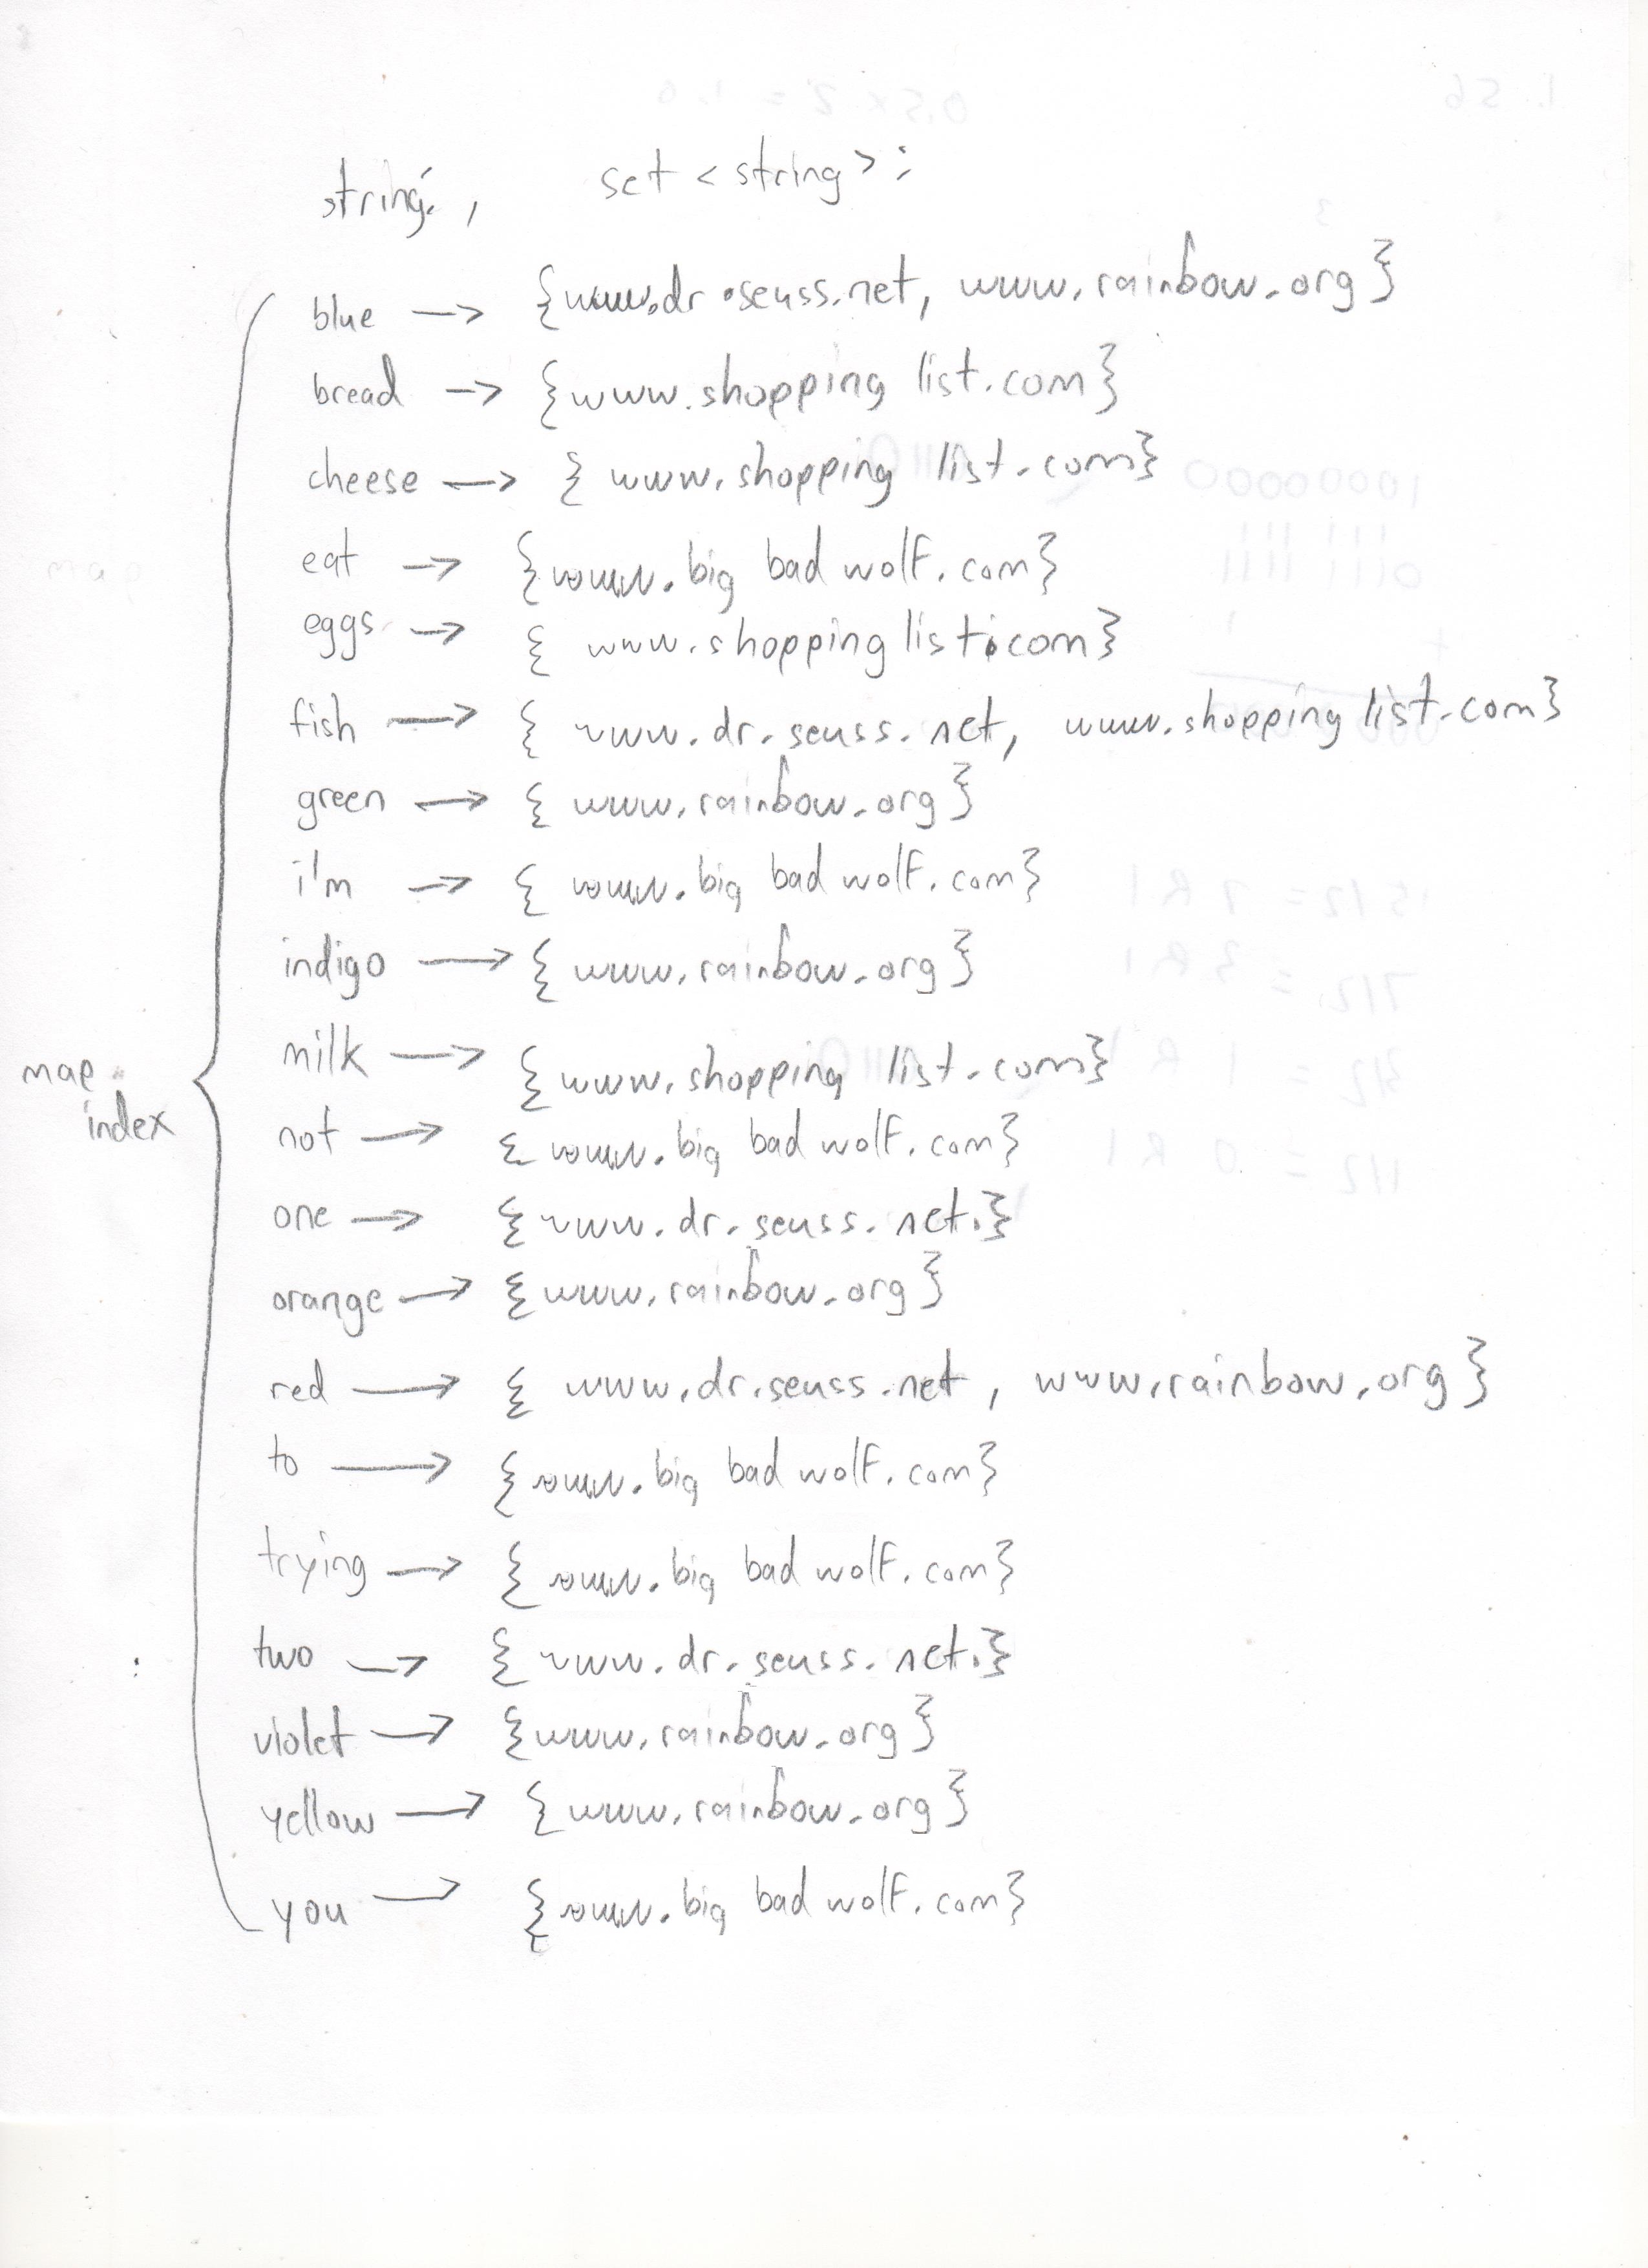 string, set <string>:
blue → {www.dr.seuss.net, www.rainbow.org}
bread → {www.shopping list.com}
cheese → { www.shopping list.com}
eat → {www.big bad wolf.com}
eggs → { www.shopping list.com}
fish → { www.dr.seuss.net, www.shopping list.com}
green → { www.rainbow.org}
i'm → { www.big bad wolf.com}
indigo → { www.rainbow.org}
milk → {www.shopping list.com}
map
index
not → { www.big bad wolf.com}
one → { www.dr.seuss.net.}
orange → { www.rainbow.org}
red → { www.dr.seuss.net, www.rainbow.org}
to → { www.big bad wolf.com}
trying → { www.big bad wolf.com}
two → { www.dr.seuss.net.}
violet → {www.rainbow.org}
yellow → { www.rainbow.org}
you → { www.big bad wolf.com}